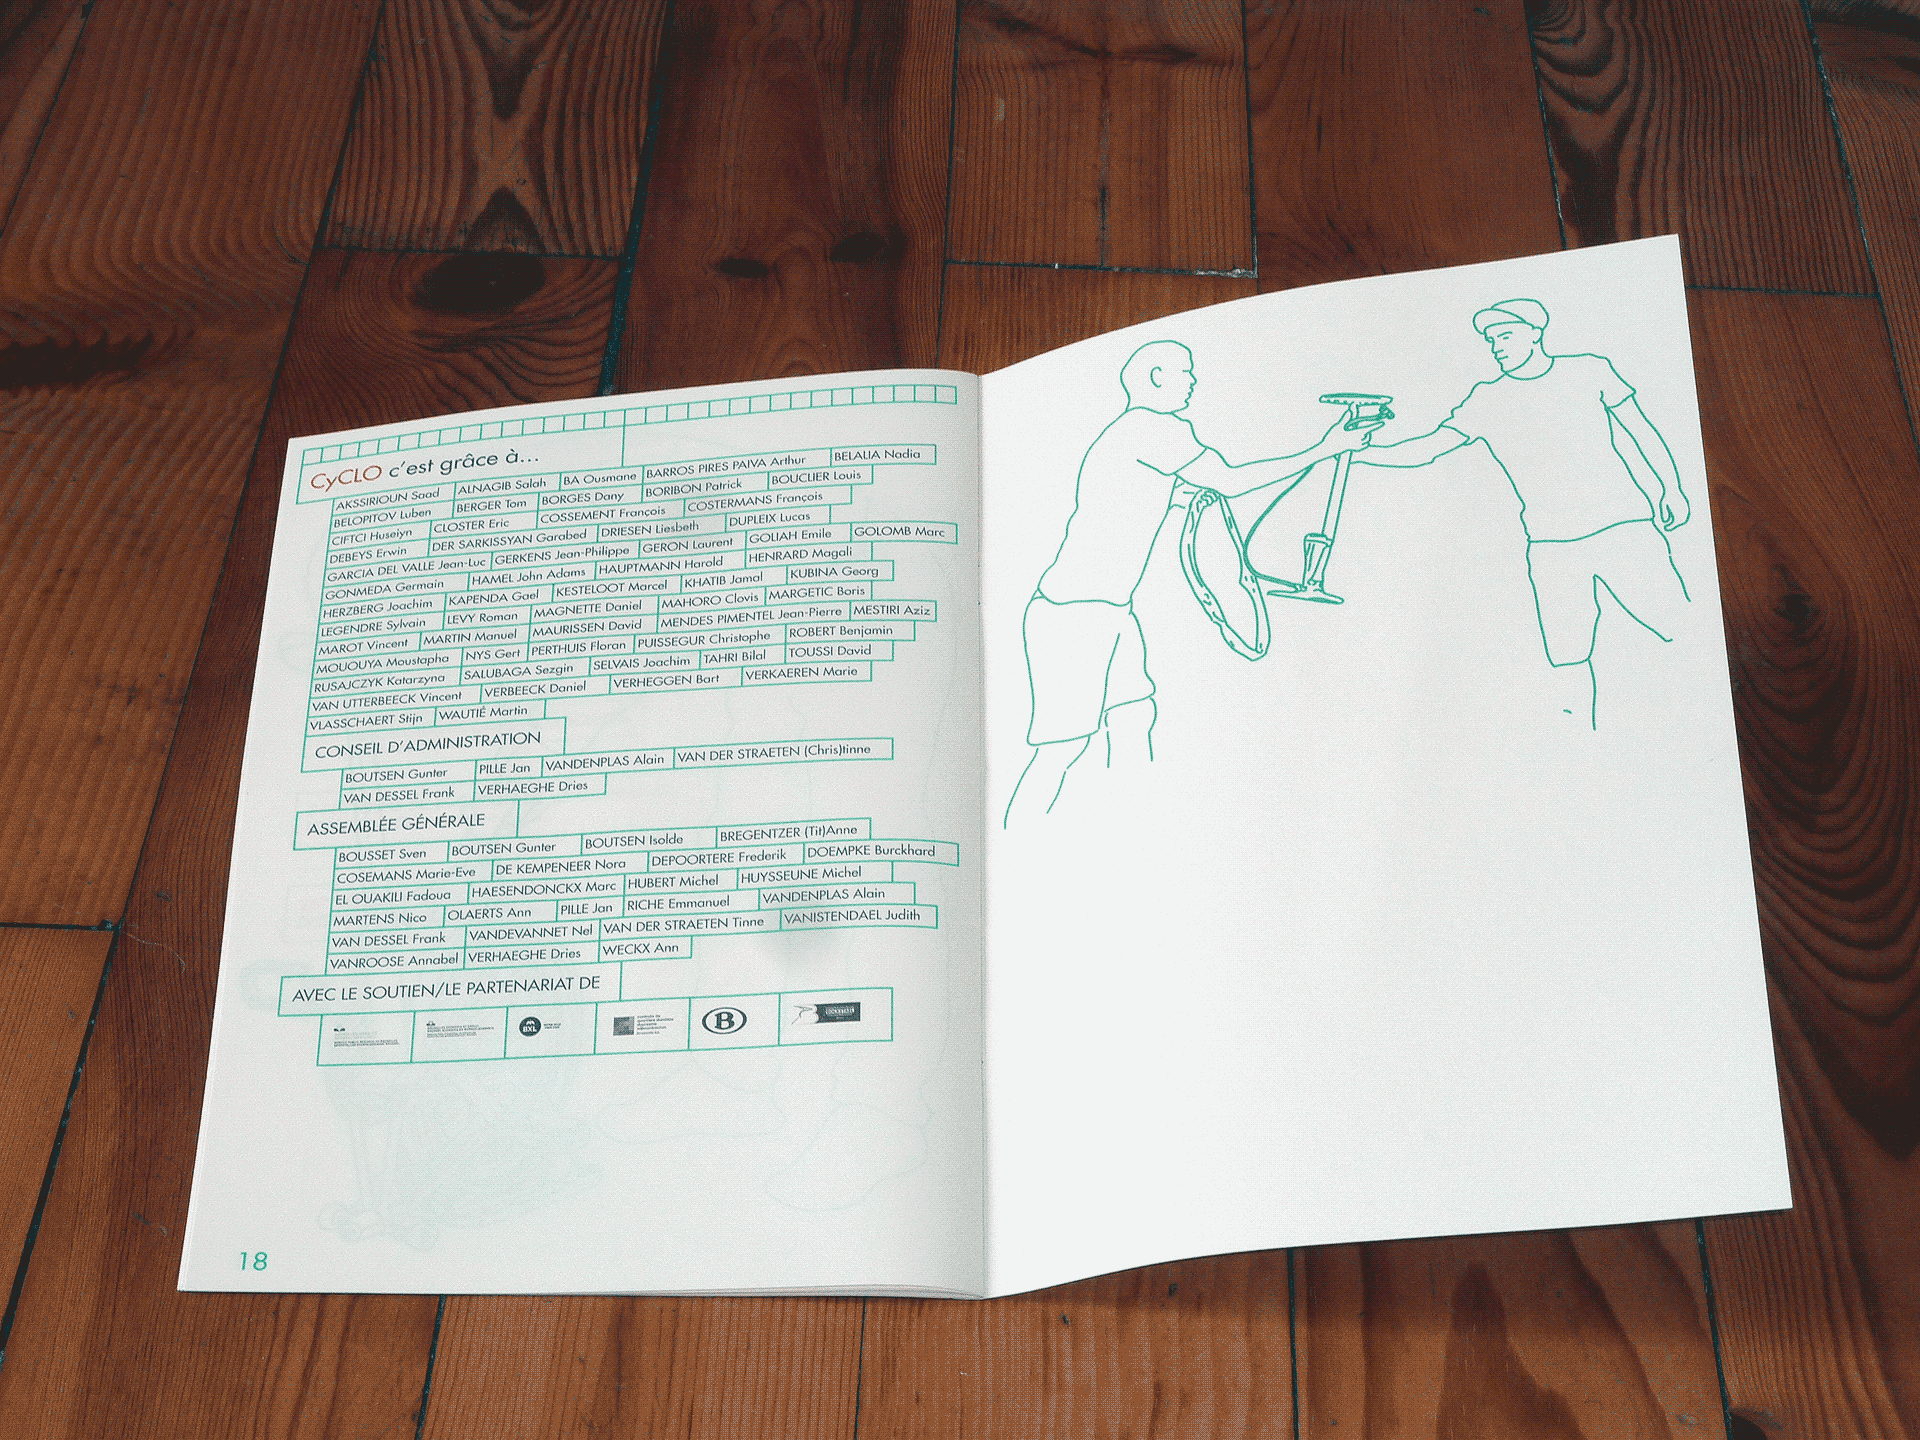 CyCLO c'est grâce à...
AKSSIRIOUN Saad ALNAGIB Salah BA Ousmane BARROS PIRES PAIVA Arthur BELALIA Nadia
BELOPITOV Luben BERGER Tom BORGES Dany BORIBON Patrick BOUCLIER Louis
CIFTCI Huseiyn CLOSTER Eric COSSEMENT François COSTERMANS François
DEBEYS Erwin DER SARKISSYAN Garabed DRIESEN Liesbeth DUPLEIX Lucas
GARCIA DEL VALLE Jean-Luc GERKENS Jean-Philippe GERON Laurent GOLIAH Emile GOLOMB Marc
GONMEDA Germain HAMEL John Adams HAUPTMANN Harold HENRARD Magali
HERZBERG Joachim KAPENDA Gael KESTELOOT Marcel KHATIB Jamal KUBINA Georg
LEGENDRE Sylvain LEVY Roman MAGNETTE Daniel MAHORO Clovis MARGETIC Boris
MAROT Vincent MARTIN Manuel MAURISSEN David MENDES PIMENTEL Jean-Pierre MESTIRI Aziz
MOUOUYA Moustapha NYS Gert PERTHUIS Floran PUISSEGUR Christophe ROBERT Benjamin
RUSAJCZYK Katarzyna SALUBAGA Sezgin SELVAIS Joachim TAHRI Bilal TOUSSI David
VAN UTTERBEECK Vincent VERBEECK Daniel VERHEGGEN Bart VERKAEREN Marie
VLASSCHAERT Stijn WAUTIÉ Martin
CONSEIL D'ADMINISTRATION
BOUTSEN Gunter PILLE Jan VANDENPLAS Alain VAN DER STRAETEN (Chris)tinne
VAN DESSEL Frank VERHAEGHE Dries
ASSEMBLÉE GÉNÉRALE
BOUSSET Sven BOUTSEN Gunter BOUTSEN Isolde BREGENTZER (Tit)Anne
COSEMANS Marie-Eve DE KEMPENEER Nora DEPOORTERE Frederik DOEMPKE Burckhard
EL OUAKILI Fadoua HAESENDONCKX Marc HUBERT Michel HUYSSEUNE Michel
MARTENS Nico OLAERTS Ann PILLE Jan RICHE Emmanuel VANDENPLAS Alain
VAN DESSEL Frank VANDEVANNET Nel VAN DER STRAETEN Tinne VANISTENDAEL Judith
VANROOSE Annabel VERHAEGHE Dries WECKX Ann
AVEC LE SOUTIEN/LE PARTENARIAT DE
BXL
B
18